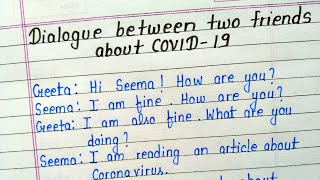 Dialogue between two friends
about COVID-19
Geeta: Hi Seema! How are you?
Seema: I am fine. How are you?
Geeta: I am also fine. What are you
doing?
Seema: I am reading an article about
Coronavirus.
about